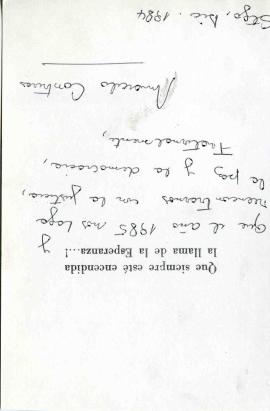 Que siempre esté encendida
la llama de la Esperanza...!
y
que el año 1985 nos haga
reencontrarnos con la justicia,
la paz y la democracia,
Fraternalmente,
Marcelo Contreras
Stgo, Dic. 1984